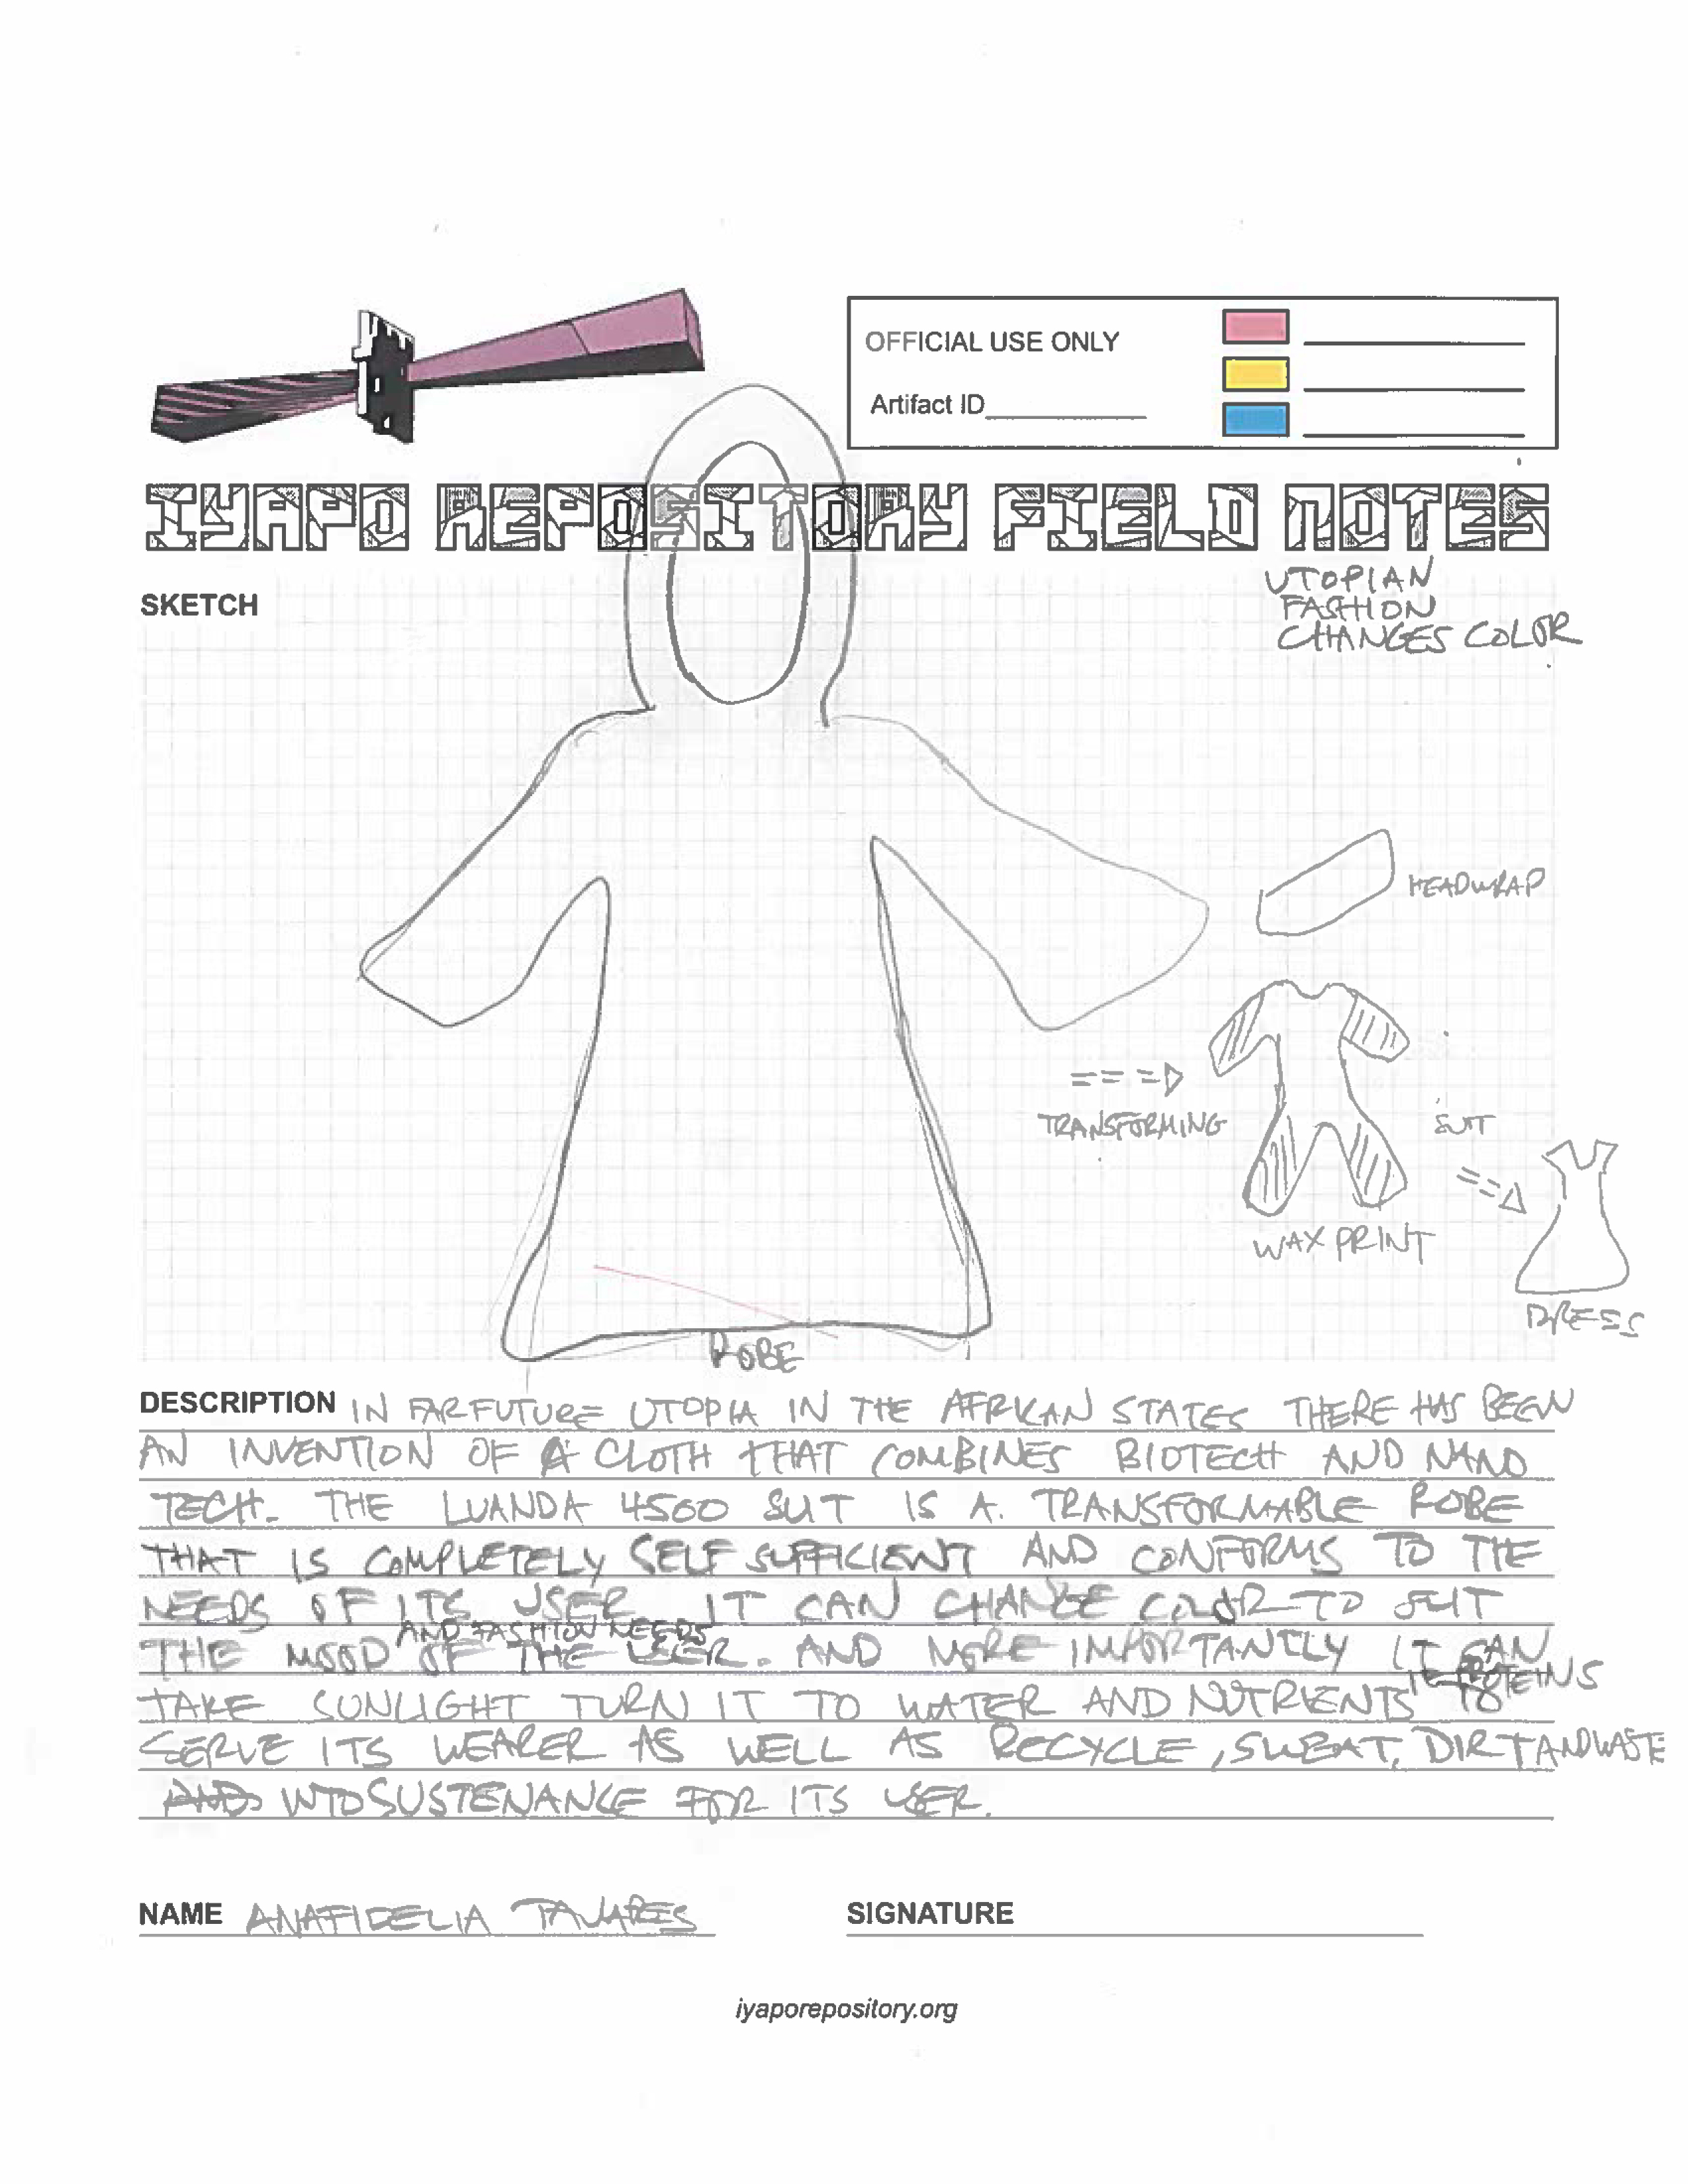 OFFICIAL USE ONLY
Artifact ID
IYAPO REPOSITORY FIELD NOTES
SKETCH
UTOPIAN
FASHION
CHANGES COLOR
HEADWRAP
TRANSFORMING
SUIT
WAX PRINT
DRESS
ROBE
DESCRIPTION IN FAR FUTURE UTOPIA IN THE AFRICAN STATES THERE HAS BEEN
AN INVENTION OF A CLOTH THAT COMBINES BIOTECH AND NANO
TECH. THE LUANDA 4500 SUIT IS A TRANSFORMABLE ROBE
THAT IS COMPLETELY SELF SUFFICIENT AND CONFORMS TO THE
NEEDS OF ITS USER IT CAN CHANGE COLOR TO SUIT
AND FASHION NEEDS
THE MOOD OF THE USER. AND MORE IMPORTANTLY IT CAN
IE PROTEINS
TAKE SUNLIGHT TURN IT TO WATER AND NUTRIENTS TO
SERVE ITS WEARER AS WELL AS RECYCLE, SWEAT, DIRT AND WASTE
AND INTO SUSTENANCE FOR ITS USER.
NAME ANAFIDELIA TAVARES
SIGNATURE
iyaporepository.org